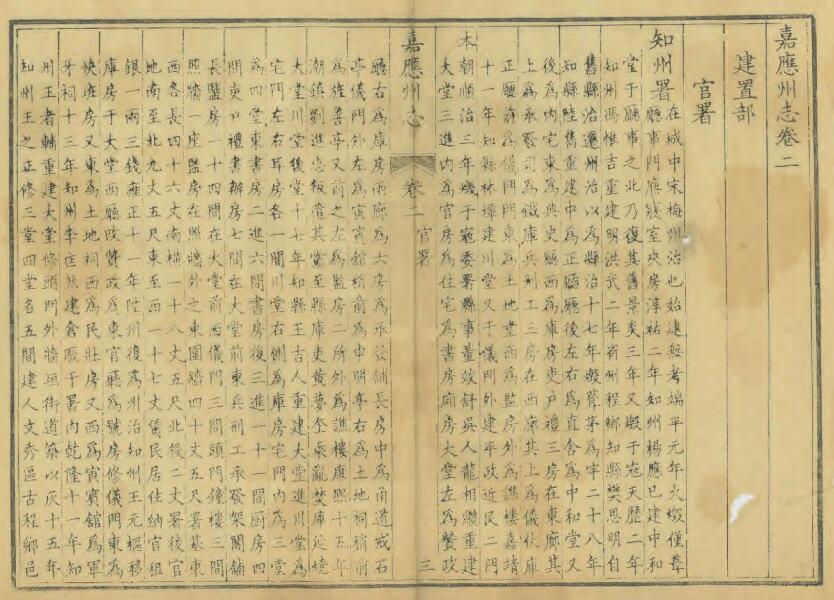 嘉應州志卷二
建置部
官署
知州署在城中宋梅州治也始建無考端平元年火燬僅葺
廳事門廡寢室夾房淳祐二年知州楊應已建中和
堂于廳事之北乃復其舊景炎三年又燬于寇天歷二年
知州馮惟吉重建明洪武二年省州程鄉知縣樊思明自
舊縣治遷州治以為縣治十七年燬葺茅為宇二十八年
知縣陸雋重建中為正廳廳後左右為直舍為中和堂又
後為內宅東為典史廳西為庫房吏戶禮三房在東廊其
上為承發司為鐵庫兵刑工三房在西廊其上為儀仗庫
正廳前為儀門門東為土地堂西為監房外為譙樓嘉靖
十年知縣林墰建川堂又于儀門外建平政近民二門
本朝順治三年燬于寇委署縣事董效舒吳人龍相繼重建
大堂三進內為官房為住宅為書房廂房大堂左為贊政
嘉應州志 卷二 官署 三
廳右為庫房兩廊為六房為承發鋪長房中為甬道戒石
亭儀門外左為寅賓館稍前為申明亭右為土地祠稍前
為旌善亭又前之左為監房二所外為譙樓康熙十五年
潮鎮劉進忠叛遣其黨至縣庫吏黃夢奎乘亂焚庫延燒
大堂川堂後堂十七年知縣王吉人重建大堂進川堂為
宅門左右耳房各一間川堂右側為庫房宅門內為三堂
為四堂東書房二進六間書房後三進一十一間廚房四
間吏戶禮書辦房七間在大堂前東兵刑工承發架閣鋪
長監房一十四間在大堂前西儀門三間頭門鐘樓三間
照牆一座監房在照牆外之東圍牆四十丈五尺署基東
西各長四十六丈南橫一十八丈五尺北後二丈署後官
地南至北九丈五尺東至西一十七丈儀民居住納官租
銀一兩三錢雍正十一年陞州復為州治知州王元樞移
庫房于大堂西廳改贊政為東官廳為號房修儀門東為
快班房又東為土地祠西為民壯房又西為寅賓館為軍
牙祠十三年知州李匡然建倉廒于署內乾隆十一年知
州王者輔重建大堂修頭門外牆垣街道築以灰十五年
知州王之正修三堂四堂各五間建人文秀區古程鄉邑